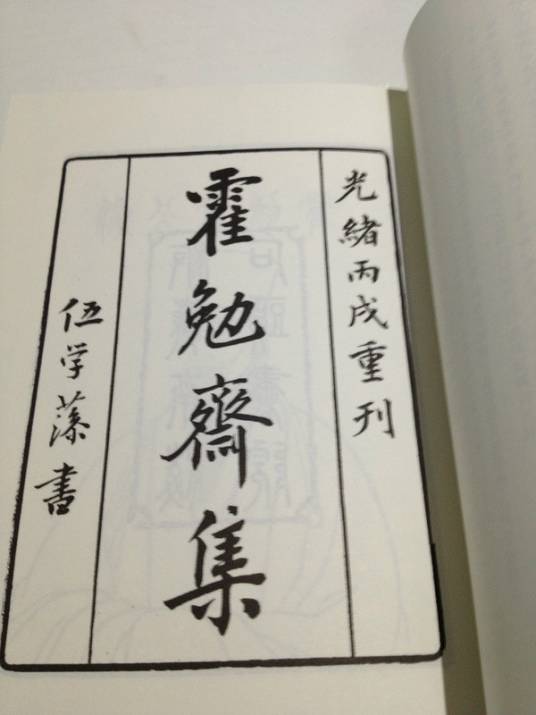 光緒丙戌重刊
霍勉齋集
伍学藻書